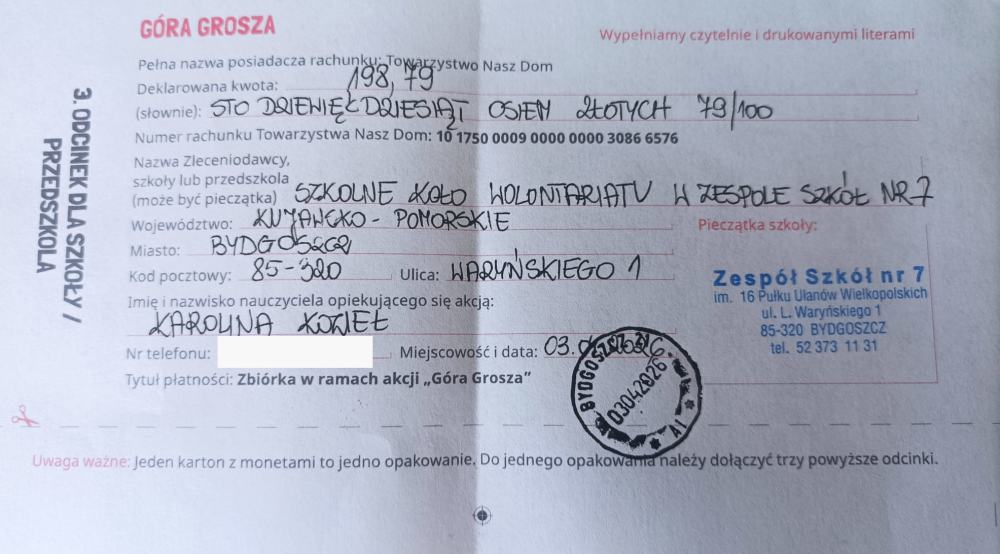 GÓRA GROSZA
Wypełniamy czytelnie i drukowanymi literami
Pełna nazwa posiadacza rachunku: Towarzystwo Nasz Dom
Deklarowana kwota: 198,79
(słownie): STO DZIEWIĘĆDZIESIĄT OSIEM ZŁOTYCH 79/100
Numer rachunku Towarzystwa Nasz Dom: 10 1750 0009 0000 0000 3086 6576
Nazwa Zleceniodawcy,
szkoły lub przedszkola
(może być pieczątka) SZKOLNE KOŁO WOLONTARIATU W ZESPOLE SZKÓŁ NR 7
Województwo: KUJAWSKO - POMORSKIE
Miasto: BYDGOSZCZ
Kod pocztowy: 85-320 Ulica: WARYŃSKIEGO 1
Imię i nazwisko nauczyciela opiekującego się akcją:
KAROLINA KOZIEŁ
Nr telefonu: Miejscowość i data: 03.04.2026.
Tytuł płatności: Zbiórka w ramach akcji „Góra Grosza”
Pieczątka szkoły:
Zespół Szkół nr 7
im. 16 Pułku Ułanów Wielkopolskich
ul. L. Waryńskiego 1
85-320 BYDGOSZCZ
tel. 52 373 11 31
BYDGOSZCZ 31
03042026
3. ODCINEK DLA SZKOŁY /
PRZEDSZKOLA
Uwaga ważne: Jeden karton z monetami to jedno opakowanie. Do jednego opakowania należy dołączyć trzy powyższe odcinki.